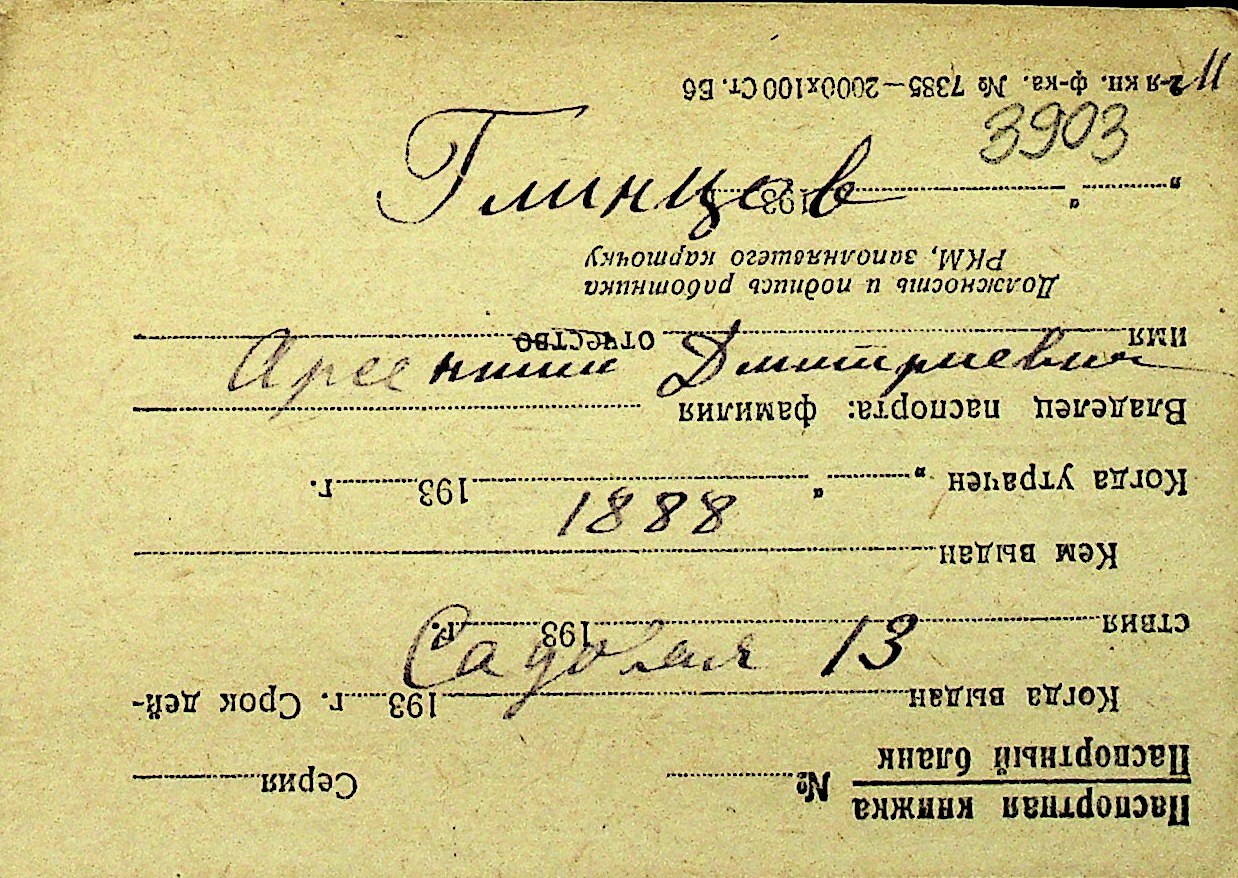 11
3903
Глинцов
Арсений Дмитриевич
1888
Садовая 13
Паспортная книжка
Паспортный бланк № Серия
Когда выдан 193 г. Срок дей-
ствия 193 г.
Кем выдан
Когда утрачен „ “ 193 г.
Владелец паспорта: фамилия
имя отчество
Должность и подпись работника
РКМ, заполнявшего карточку
„ “ 193 г.
2-я кн. ф-ка. № 7385—2000х100 Ст. Б6